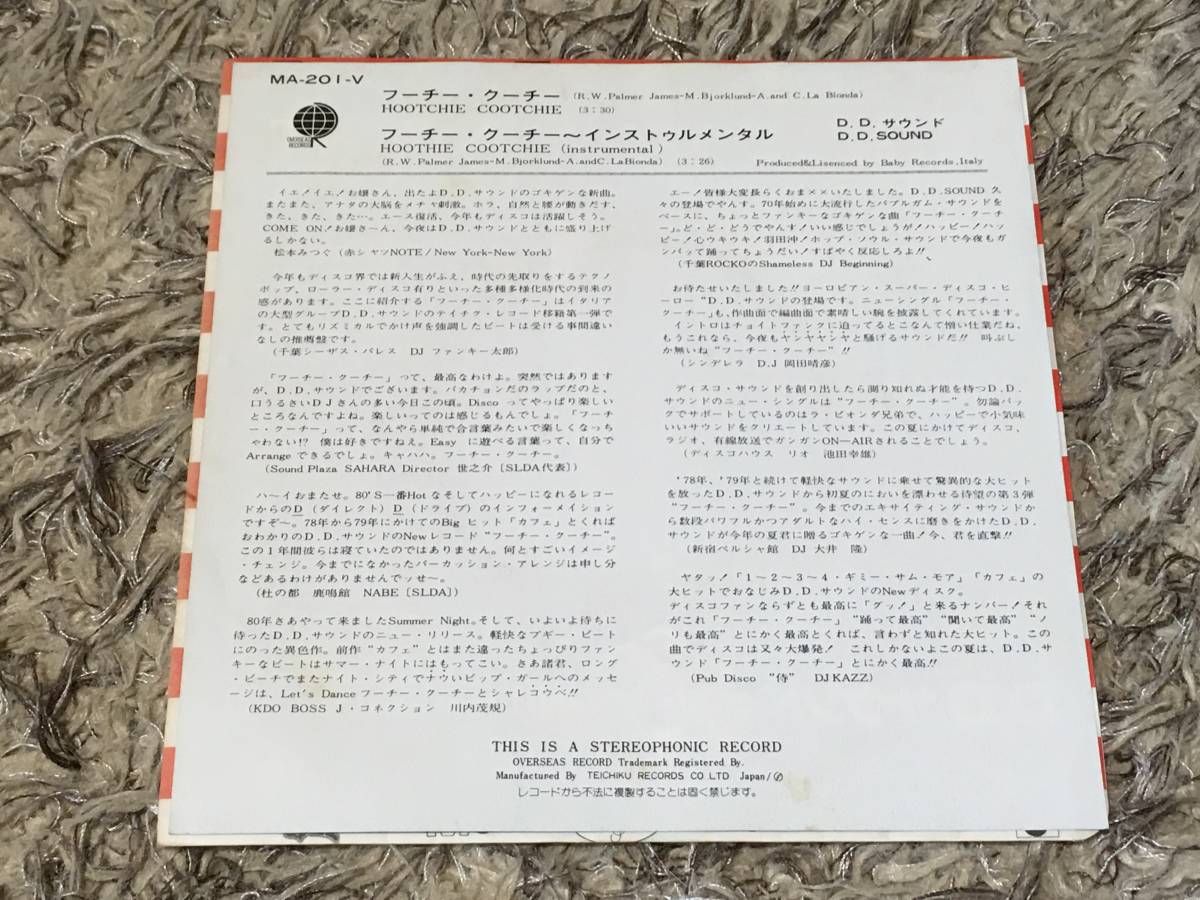 MA-201-V
OVERSEAS RECORDS
フーチー・クーチー (R.W.Palmer James-M.Bjorklund-A.and C.La Bionda)
HOOTCHIE COOTCHIE (3:30)
フーチー・クーチー〜インストゥルメンタル
HOOTHIE COOTCHIE (instrumental)
(R.W.Palmer James-M.Bjorklund-A.andC.LaBionda) (3:26)
D.D.サウンド
D.D.SOUND
Produced&Lisenced by Baby Records,Italy
イエ!イエ!お嬢さん、出たよD.D.サウンドのゴキゲンな新曲。
またまた、アナタの大脳をメチャ刺激。ホラ、自然と腰が動きだす、
きた、きた、きた…。エース復活、今年もディスコは活躍しそう。
COME ON!お嬢さ〜ん、今夜はD.D.サウンドとともに盛り上げ
るしかない。
松本みつぐ(赤シャツNOTE/New York-New York)
今年もディスコ界では新人生がふえ、時代の先取りをするテクノ
ポップ、ローラー・ディスコ有りといった多種多様化時代の到来の
感があります。ここに紹介する「フーチー・クーチー」はイタリア
の大型グループD.D.サウンドのテイチク・レコード移籍第一弾で
す。とてもリズミカルでかけ声を強調したビートは受ける事間違い
なしの推薦盤です。
(千葉シーザス・パレス DJ ファンキー太郎)
「フーチー・クーチー」って、最高なわけよ。突然ではあります
が、D.D.サウンドでございます。バカチョンだのラップだのと、
口うるさいDJさんの多い今日この頃。Disco ってやっぱり楽しい
ところなんですよね。楽しいってのは感じるもんでしょ。「フーチ
ー・クーチー」って、なんやら単純で合言葉みたいで楽しくなっち
ゃわない!? 僕は好きですねえ。Easy に遊べる言葉って、自分で
Arrange できるでしょ。キャハハ。フーチー・クーチー。
(Sound Plaza SAHARA Director 世之介〔SLDA代表〕)
ハ〜イおまたせ。80'S一番Hot なそしてハッピーになれるレコー
ドからのD(ダイレクト)D(ドライブ)のインフォーメイション
ですぞ〜。78年から79年にかけてのBig ヒット「カフェ」とくれば
おわかりのD.D.サウンドのNewレコード“フーチー・クーチー”。
この1年間彼らは寝ていたのではありません。何とすごいイメージ
・チェンジ。今までになかったパーカッション・アレンジは申し分
などあるわけがありませんでッせ〜。
(杜の都 鹿鳴館 NABE〔SLDA〕)
80年さあやって来ましたSummer Night。そして、いよいよ待ちに
待ったD.D.サウンドのニュー・リリース。軽快なブギー・ビート
にのった異色作。前作“カフェ”とはまた違ったちょっぴりファン
キーなビートはサマー・ナイトにはもってこい。さあ諸君、ロング
・ビーチでまたナイト・シティでナウいビップ・ガールへのメッセ
ージは、Let's Dance フーチー・クーチーとシャレコウベ!!
(KDO BOSS J・コネクション 川内茂規)
エー!皆様大変長らくおま××いたしました。D.D.SOUND 久
々の登場でやんす。70年始めに大流行したバブルガム・サウンドを
ベースに、ちょっとファンキーなゴキゲンな曲「フーチー・クーチ
ー」。ど・ど・どうでやんす!いい感じでしょうが!ハッピー!ハッ
ピー!心ウキウキ!羽田沖!ホップ・ソウル・サウンドで今夜もガ
ンバッて踊ってちょうだい!すばやく反応しろよ!!
(千葉ROCKOのShameless DJ Beginning)
お待たせいたしました!!ヨーロピアン・スーパー・ディスコ・ヒ
ーロー“D.D.サウンドの登場です。ニューシングル「フーチー・
クーチー」も、作曲面で編曲面で素晴しい腕を披露してくれています。
イントロはチョイトファンクに迫ってるとこなんて憎い仕業だね。
もうこれなら、今夜もヤンヤヤンヤと騒げるサウンドだ!! 叫ぶし
か無いね“フーチー・クーチー”!!
(シンデレラ D.J 岡田晴彦)
ディスコ・サウンドを創り出したら測り知れぬ才能を持つD.D.
サウンドのニュー・シングルは“フーチー・クーチー”。勿論バッ
クでサポートしているのはラ・ビオンダ兄弟で、ハッピーで小気味
いいサウンドをクリエートしています。この夏にかけてディスコ、
ラジオ、有線放送でガンガンON—AIRされることでしょう。
(ディスコハウス リオ 池田幸雄)
'78年、'79年と続けて軽快なサウンドに乗せて驚異的な大ヒット
を放ったD.D.サウンドから初夏のにおいを漂わせる待望の第3弾
“フーチー・クーチー”。今までのエキサイティング・サウンドか
ら数段パワフルかつアダルトなハイ・センスに磨きをかけたD.D.
サウンドが今年の夏君に贈るゴキゲンな一曲!今、君を直撃!!
(新宿ペルシャ館 DJ 大井 隆)
ヤタッ!「1〜2〜3〜4・ギミー・サム・モア」「カフェ」の
大ヒットでおなじみD.D.サウンドのNewディスク。
ディスコファンならずとも最高に「グッ!」と来るナンバー!それ
がこれ「フーチー・クーチー」“踊って最高”“聞いて最高”“ノ
リも最高”とにかく最高とくれば、言わずと知れた大ヒット。この
曲でディスコは又々大爆発! これしかないよこの夏は、D.D.サ
ウンド「フーチー・クーチー」とにかく最高!!
(Pub Disco “侍” DJ KAZZ)
THIS IS A STEREOPHONIC RECORD
OVERSEAS RECORD Trademark Registered By.
Manufactured By TEICHIKU RECORDS CO.LTD Japan/
レコードから不法に複製することは固く禁じます。